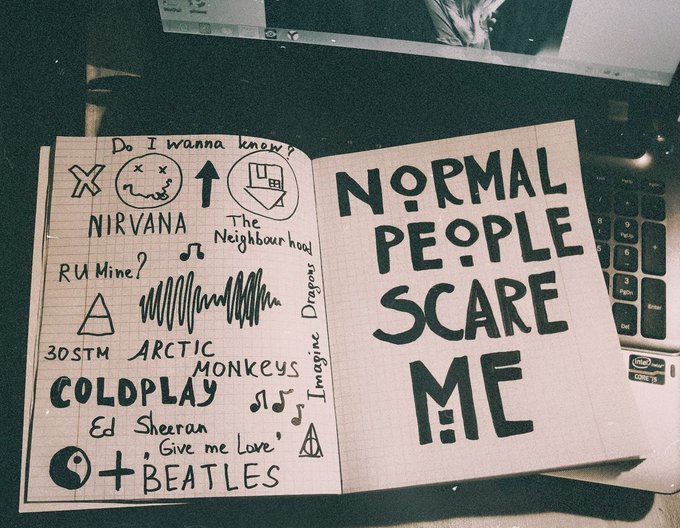 Do I wanna know?
X
NIRVANA
The
Neighbourhood
RU Mine?
Imagine Dragons
30STM
ARCTIC
MONKEYS
COLDPLAY
Ed Sheeran
'Give me Love'
BEATLES
NORMAL
PEOPLE
SCARE
ME
8
9
PgUp
+
6
3
PgDn
Enter
Del
intel
CORE i5